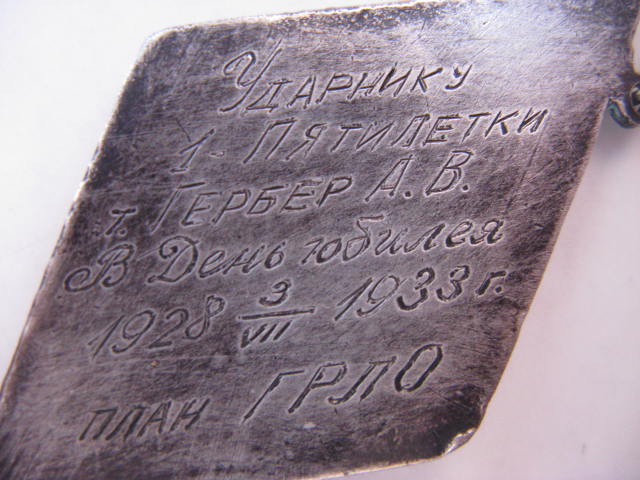 Ударнику
1-Пятилетки
т. Гербер А.В.
В День юбилея
1928 3/VII 1933 г.
план ГРЛО